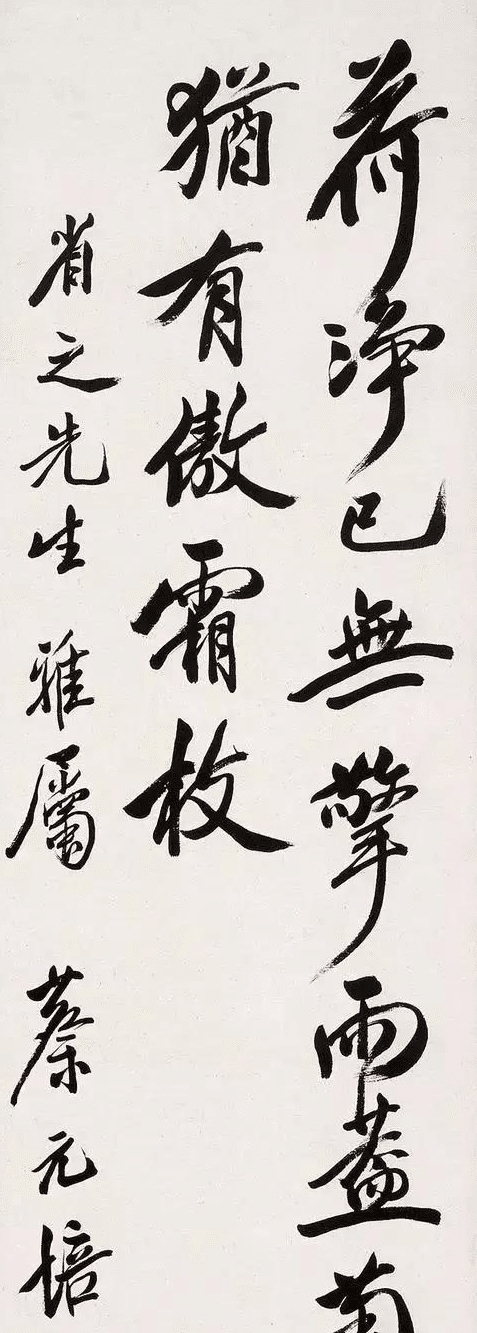 荷淨已無擎雨蓋菊
猶有傲霜枝
省之先生雅屬
蔡元培